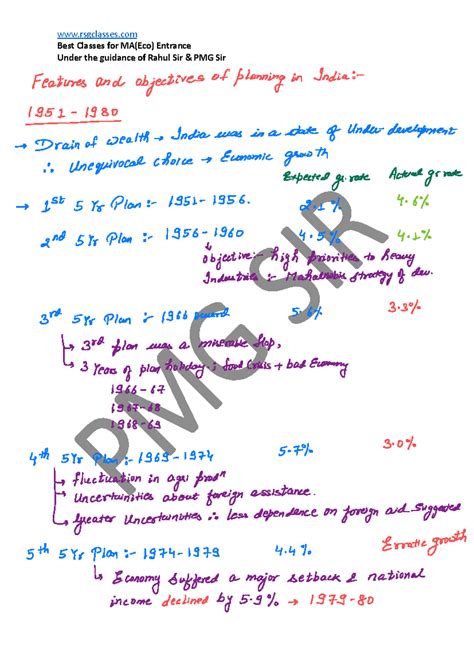 www.rsgclasses.com
Best Classes for MA(Eco) Entrance
Under the guidance of Rahul Sir & PMG Sir
Features and objectives of planning in India:-
1951 - 1980
→ Drain of wealth → India was in a state of Under-development
∴ Unequivocal choice → Economic growth
Expected gr. rate Actual gr rate
→ 1st 5 Yr Plan :- 1951- 1956. 2.1% 4.6%
2nd 5 Yr Plan :- 1956 - 1960 4.5% 4.1%
↳ Objective:- high priorities to heavy
Industries :- Mahalanobis Strategy of dev.
3rd 5Yr Plan :- 1966 5.6% 3.3%
↳ 3rd plan was a miserable flop,
↳ 3 Years of plan holiday ; food Crisis + bad Economy
1966 - 67
1967-68
1968 - 69
4th 5Yr Plan :- 1969 - 1974 5.7% 3.0%
↳ fluctuation in agri prodn
↳ Uncertainities about foreign assistance.
↳ Greater Uncertainities ∴ less dependence on foreign aid suggested
5th 5Yr Plan :- 1974 - 1979 4.4% Erratic growth
↳ Economy suffered a major setback & national
income declined by 5.9% → 1979 - 80
PMG SIR